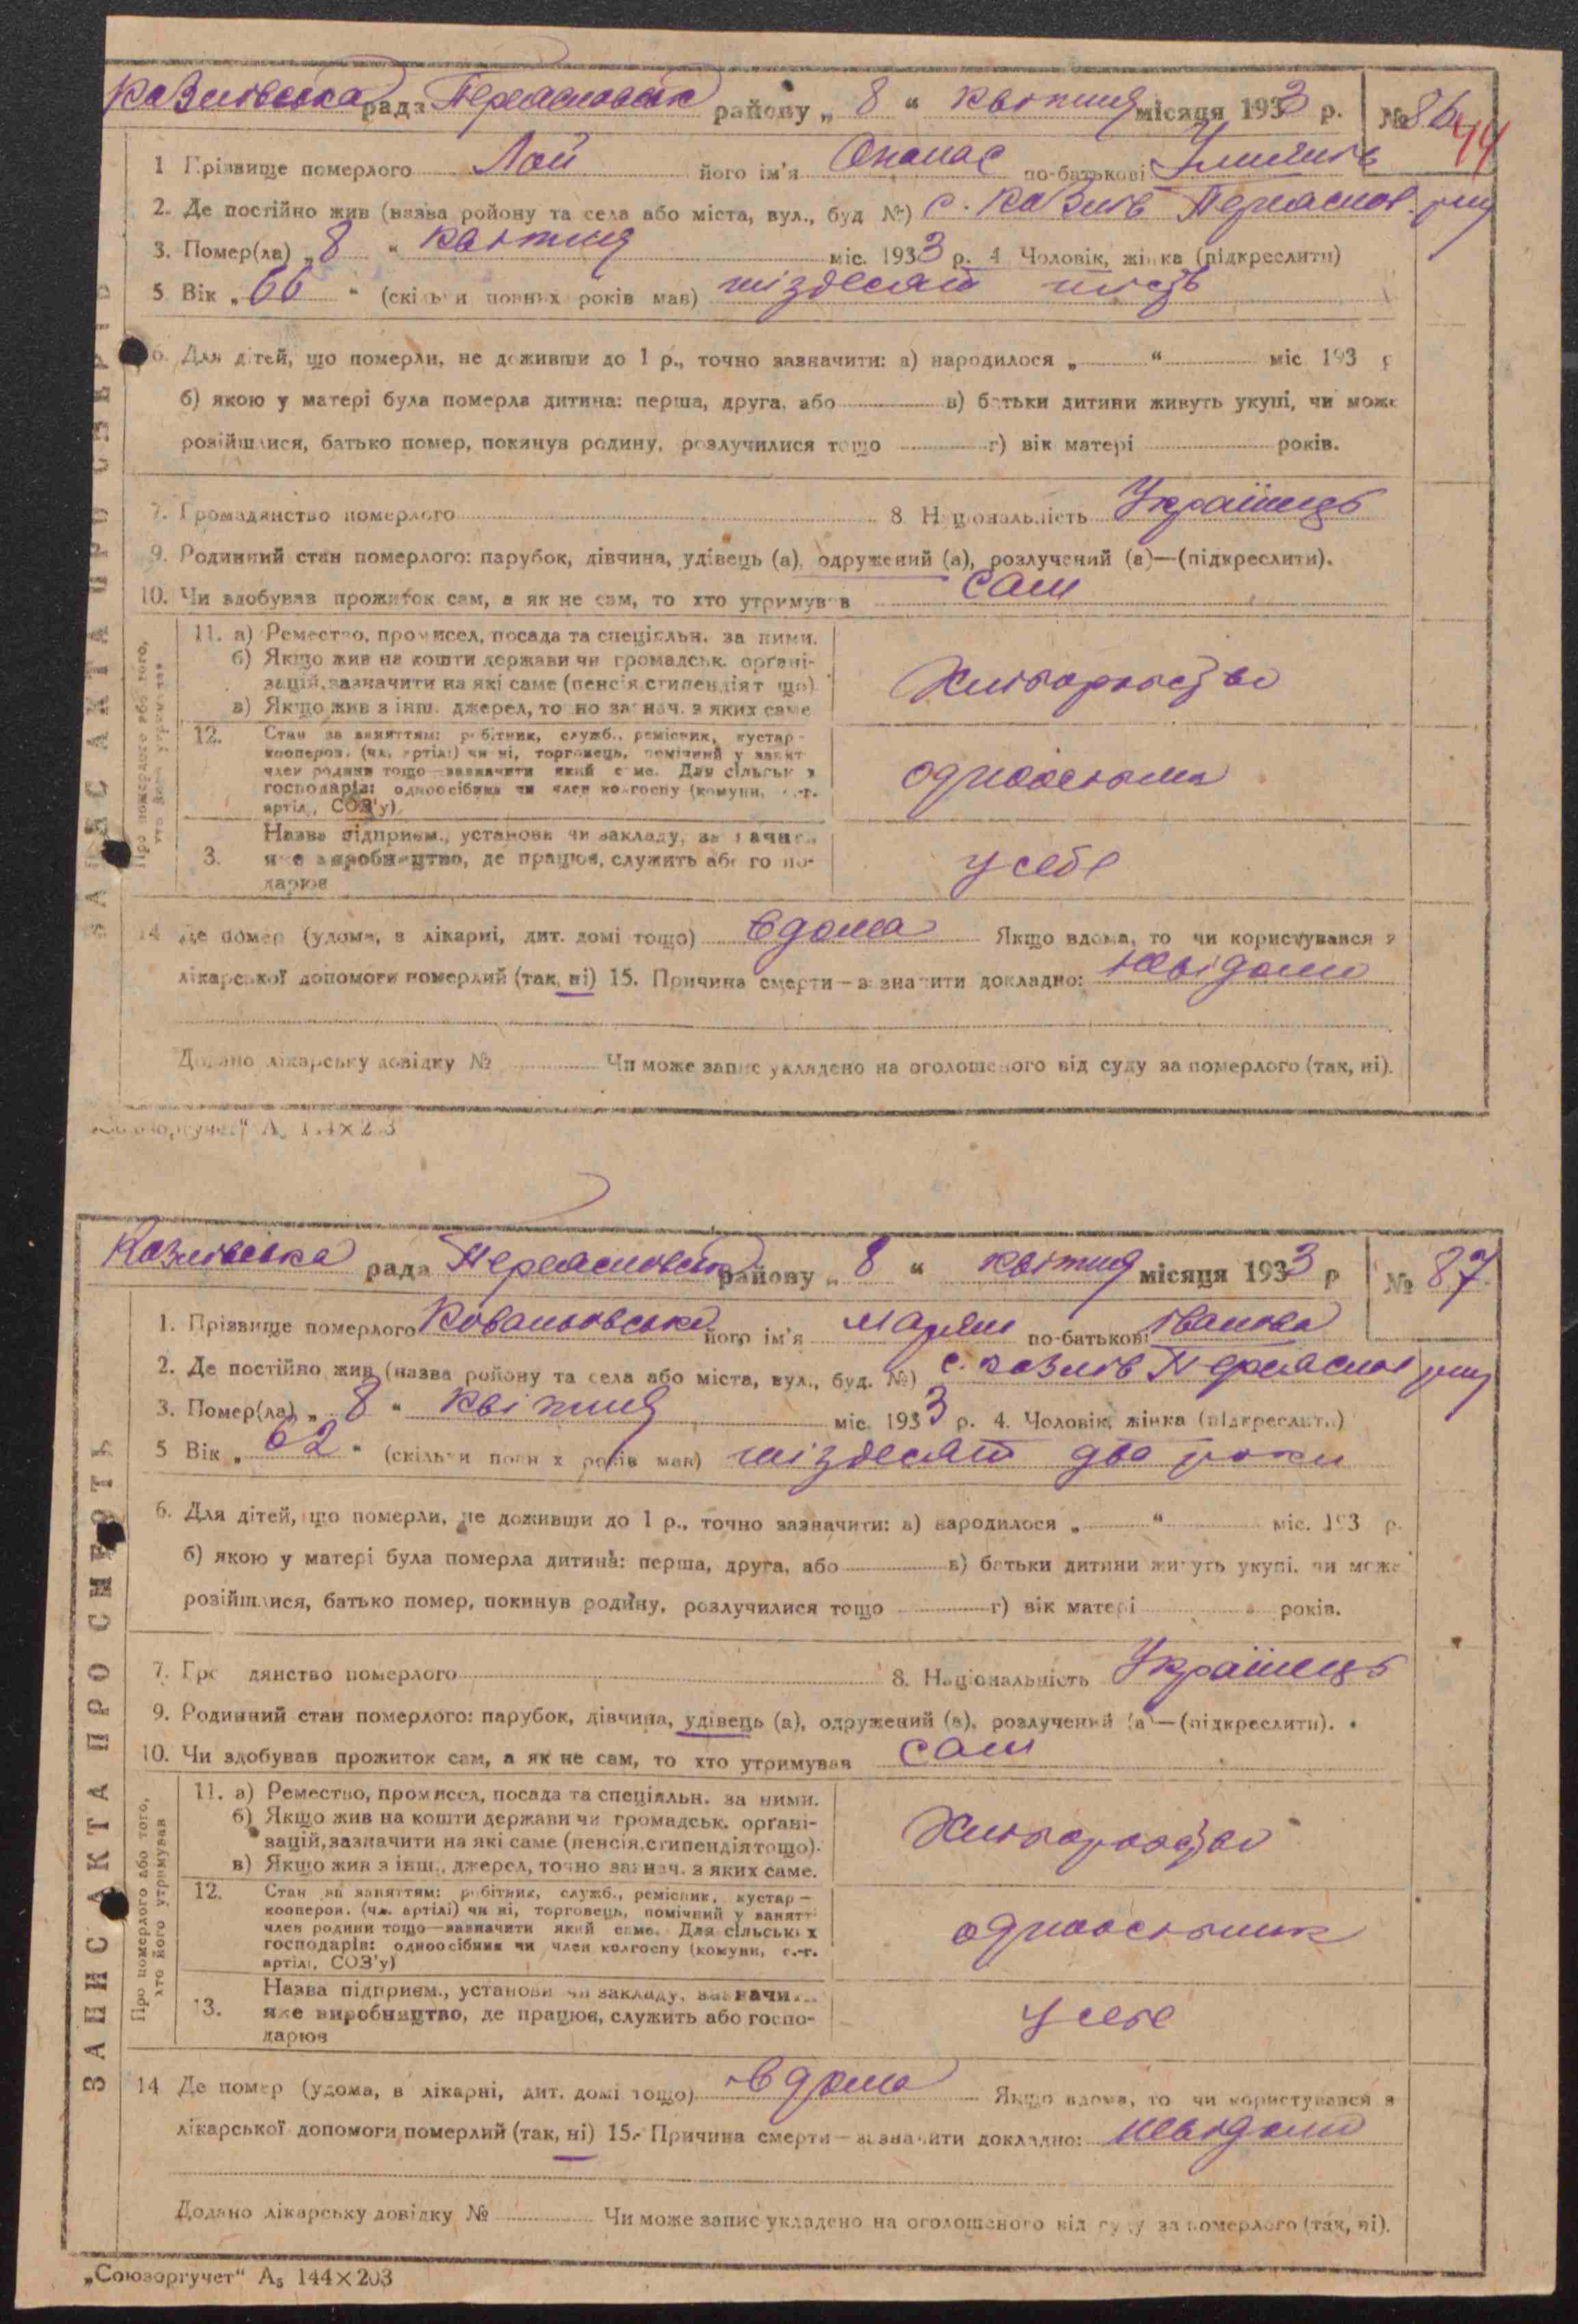 Козлівська рада Переасловськ району „ 8 “ квітня місяця 1933 р. № 86
44
1 Прізвище померлого Лой його ім'я Опанас по-батькові
2. Де постійно жив (назва ройону та села або міста, вул., буд №) с. Козлів Переаслов. р-ну
3. Помер(ла) „ 8 “ квітня міс. 1933 р. 4 Чоловік, жінка (підкреслити)
5 Вік „ 66 “ (скільки повних років мав) шіздесят шість
6. Для дітей, що померли, не доживши до 1 р., точно зазначити: а) народилося „ “ міс 193 р
б) якою у матері була померла дитина: перша, друга, або в) батьки дитини живуть укупі, чи може
розійшлися, батько помер, покинув родину, розлучилися тощо г) вік матері років.
7. Громадянство померлого 8 Національність Українець
9. Родинний стан померлого: парубок, дівчина, удівець (а), одружений (а), розлучений (а)—(підкреслити).
10. Чи здобував прожиток сам, а як не сам, то хто утримував сам
Про померлого або того, хто його утримував
11. а) Ремество, промисел, посада та спеціяльн. за ними.
б) Якщо жив на кошти держави чи громадськ. орґані-
зацій, зазначити на які саме (пенсія, стипендіят що)
в) Якщо жив з інш. джерел, точно зазнач. з яких саме
Хліборобство
12. Стан за заняттям: робітник, служб., ремісник, кустар-
кооперов. (чл. артілі) чи ні, торговець, помічний у занят
член родини тощо—зазначити який саме. Для сільськ х
господарів: одноосібник чи член колгоспу (комуни, с.-г.
артілі, СОЗ'у)
3. Назва підприєм., установи чи закладу, зазначи
яке виробництво, де працює, служить або го по-
дарює
у себе
14 Де помер (удома, в лікарні, дит. домі тощо) вдома Якщо вдома, то чи користувався з
лікарської допомоги померлий (так, ні) 15. Причина смерти — зазначити докладно: невідомо
Додано лікарську довідку № Чи може запис укладено на оголошеного від суду за померлого (так, ні).
ЗАПИС АКТА ПРО СМЕРТЬ
Козлівська рада Переасловськ району „ 8 “ квітня місяця 1933 р № 87
1. Прізвище померлого його ім'я по-батькові Іванова
2. Де постійно жив (назва ройону та села або міста, вул., буд. №) с. Козлів Переаслов р-ну
3. Помер(ла) „ 8 “ квітня міс. 1933 р. 4. Чоловік, жінка (підкреслити)
5 Вік „ 62 “ (скільки повн х років мав) шіздесят два роки
6. Для дітей, що померли, не доживши до 1 р., точно зазначити: а) народилося „ “ міс. 193 р.
б) якою у матері була померла дитина: перша, друга, або в) батьки дитини живуть укупі, чи може
розійшлися, батько помер, покинув родину, розлучилися тощо г) вік матері років.
7. Гро дянство померлого 8. Національність Українець
9. Родинний стан померлого: парубок, дівчина, удівець (а), одружений (а), розлучений (а)—(підкреслити).
10. Чи здобував прожиток сам, а як не сам, то хто утримував сам
Про померлого або того, хто його утримував
11. а) Ремество, промисел, посада та спеціяльн. за ними.
б) Якщо жив на кошти держави чи громадськ. орґані-
зацій, зазначити на які саме (пенсія, стипендія тощо).
в) Якщо жив з інш., джерел, точно зазнач. з яких саме.
Хліборобство
12. Стан за заняттям: робітник, служб., ремісник, кустар—
кооперов. (чл. артілі) чи ні, торговець, помічний у занятт
член родини тощо—зазначити який саме. Для сільськ х
господарів: одноосібник чи член колгоспу (комуни, с.-г.
артілі, СОЗ'у)
13. Назва підприєм., установи чи закладу, зазначи
яке виробництво, де працює, служить або госпо-
дарює
у себе
14 Де помер (удома, в лікарні, дит. домі тощо) вдома Якщо вдома, то чи користувався з
лікарської допомоги померлий (так, ні) 15. Причина смерти — зазначити докладно: невідомо
Додано лікарську довідку № Чи може запис укладено на оголошеного від суду за померлого (так, ні).
ЗАПИС АКТА ПРО СМЕРТЬ
„Союзоргучет“ А5 144×203